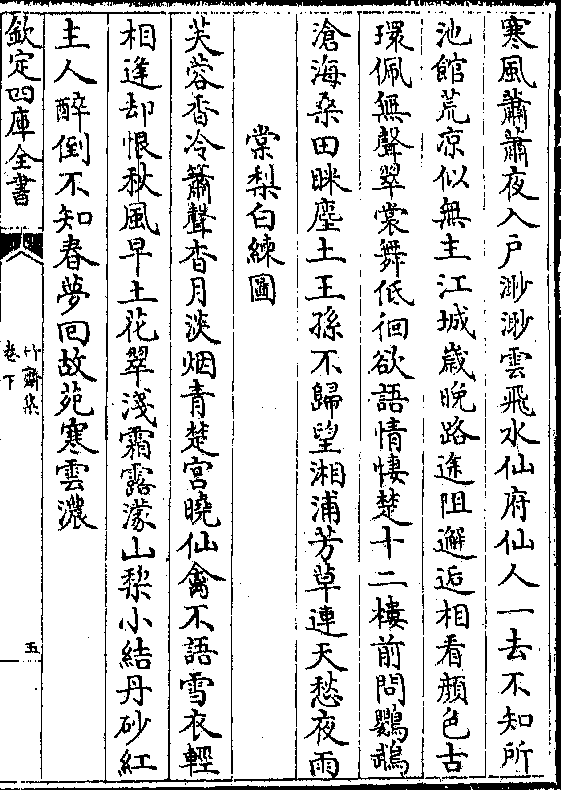 寒風蕭蕭夜入戸渺渺雲飛水仙府仙人一去不知所
池館荒凉似無主江城歳晚路途阻邂逅相看顔色古
環佩無聲翠裳舞低徊欲語情悽楚十二樓前問鸚鵡
滄海桑田眯塵土王孫不歸望湘浦芳草連天愁夜雨
棠梨白練圖
芙蓉香冷簫聲杳月淡烟青楚宮曉仙禽不語雪衣輕
相逢却恨秋風早土花翠淺霜露濛山梨小結丹砂紅
主人醉倒不知春夢回故苑寒雲濃
欽定四庫全書
竹齋集
卷下
五